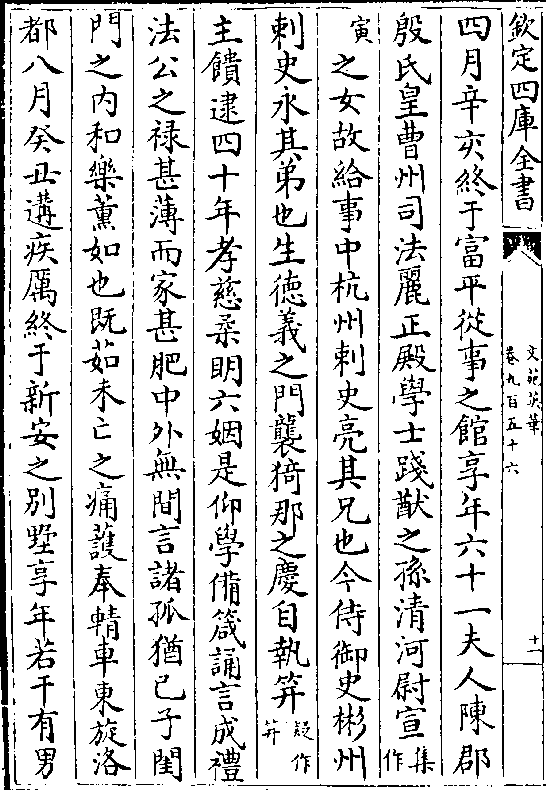 欽定四庫全書
文苑英華
卷九百五十六
十一
四月辛亥終于富平從事之館享年六十一夫人陳郡
殷氏皇曹州司法麗正殿學士踐猷之孫清河尉宣集作
寅之女故給事中杭州刺史亮其兄也今侍御史彬州
刺史永其弟也生德義之門襲猗那之慶自執笄疑作笄
主饋逮四十年孝慈柔明六姻是仰學備箴誦言成禮
法公之祿甚薄而家甚肥中外無間言諸孤猶已子閨
門之内和樂薰如也既茹未亡之痛護奉輤車東旋洛
都八月癸丑遘疾厲終于新安之别墅享年若干有男